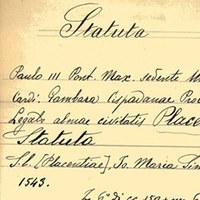 Statuta
Paulo III Pont. Max. sedente
Card. Gambara Cispadanae Prov
Legato almae civitatis Place
Statuta
[Placentiae], Jo. Maria Sim
1543.